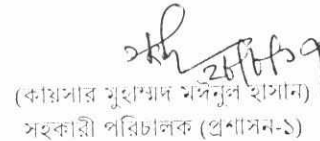 ২৮/৮/১৭
(কায়সার মুহাম্মদ মঈনুল হাসান)
সহকারী পরিচালক (প্রশাসন-১)